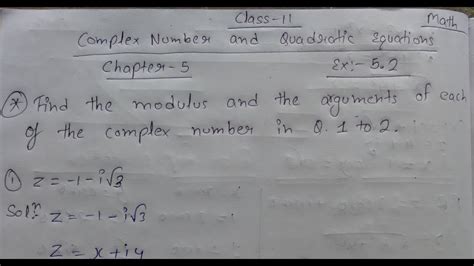 Class-11 Math
Complex Number and Quadratic Equations
Chapter-5 Ex:- 5.2
* Find the modulus and the arguments of each
of the complex number in Q. 1 to 2.
① z = -1 - i√3
Solⁿ: z = -1 - i√3
z = x + iy